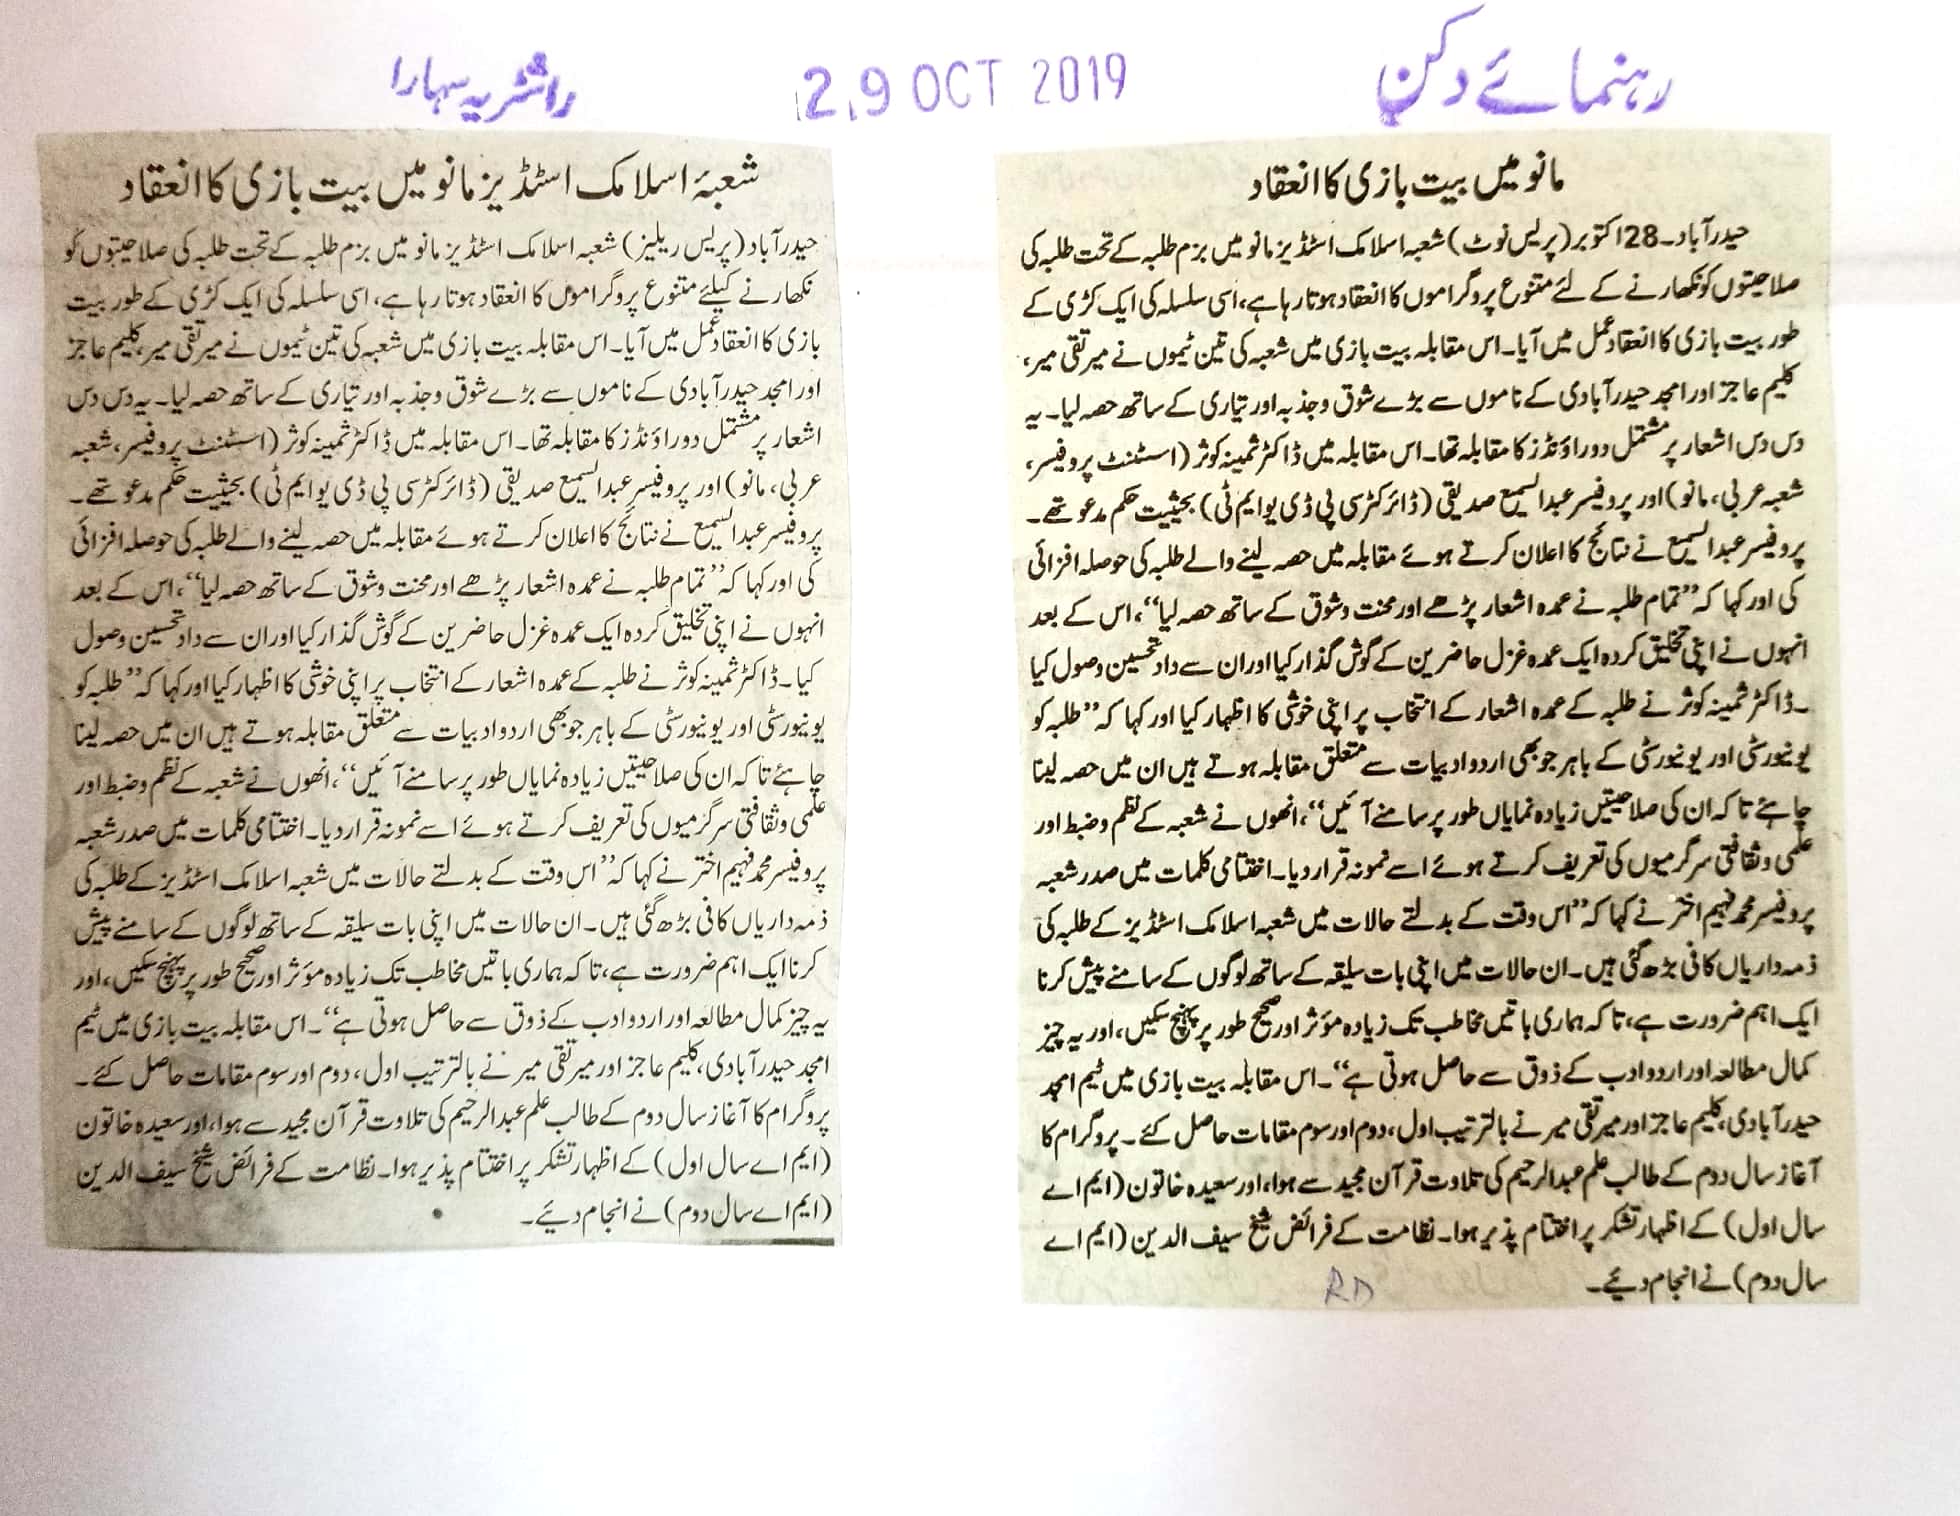 رہنمائے دکن
29 OCT 2019
راشٹریہ سہارا
مانو میں بیت بازی کا انعقاد
حیدرآباد۔28 اکتوبر (پریس نوٹ) شعبہ اسلامک اسٹڈیز مانو میں بزم طلبہ کے تحت طلبہ کی
صلاحیتوں کو نکھارنے کے لئے متنوع پروگراموں کا انعقاد ہوتا رہا ہے، اسی سلسلہ کی ایک کڑی کے
طور بیت بازی کا انعقاد عمل میں آیا۔ اس مقابلہ بیت بازی میں شعبہ کی تین ٹیموں نے میر تقی میر،
کلیم عاجز اور امجد حیدرآبادی کے ناموں سے بڑے شوق و جذبہ اور تیاری کے ساتھ حصہ لیا۔ یہ
دس دس اشعار پر مشتمل دو راؤنڈز کا مقابلہ تھا۔ اس مقابلہ میں ڈاکٹر ثمینہ کوثر (اسسٹنٹ پروفیسر،
شعبہ عربی، مانو) اور پروفیسر عبدالسمیع صدیقی (ڈائرکٹر سی پی ڈی یو ایم ٹی) بحیثیت حکم مدعو تھے۔
پروفیسر عبدالسمیع نے نتائج کا اعلان کرتے ہوئے مقابلہ میں حصہ لینے والے طلبہ کی حوصلہ افزائی
کی اور کہا کہ ’’تمام طلبہ نے عمدہ اشعار پڑھے اور محنت و شوق کے ساتھ حصہ لیا‘‘، اس کے بعد
انہوں نے اپنی تخلیق کردہ ایک عمدہ غزل حاضرین کے گوش گذار کیا اور ان سے داد تحسین وصول کیا
۔ڈاکٹر ثمینہ کوثر نے طلبہ کے عمدہ اشعار کے انتخاب پر اپنی خوشی کا اظہار کیا اور کہا کہ ’’طلبہ کو
یونیورسٹی اور یونیورسٹی کے باہر جو بھی اردو ادبیات سے متعلق مقابلہ ہوتے ہیں ان میں حصہ لینا
چاہئے تاکہ ان کی صلاحیتیں زیادہ نمایاں طور پر سامنے آئیں‘‘، انھوں نے شعبہ کے نظم و ضبط اور
علمی و ثقافتی سرگرمیوں کی تعریف کرتے ہوئے اسے نمونہ قرار دیا۔ اختتامی کلمات میں صدر شعبہ
پروفیسر محمد فہیم اختر نے کہا کہ ’’اس وقت کے بدلتے حالات میں شعبہ اسلامک اسٹڈیز کے طلبہ کی
ذمہ داریاں کافی بڑھ گئی ہیں۔ ان حالات میں اپنی بات سلیقہ کے ساتھ لوگوں کے سامنے پیش کرنا
ایک اہم ضرورت ہے، تاکہ ہماری باتیں مخاطب تک زیادہ مؤثر اور صحیح طور پر پہنچ سکیں، اور یہ چیز
کمال مطالعہ اور اردو ادب کے ذوق سے حاصل ہوتی ہے‘‘۔ اس مقابلہ بیت بازی میں ٹیم امجد
حیدرآبادی، کلیم عاجز اور میر تقی میر نے بالترتیب اول، دوم اور سوم مقامات حاصل کئے۔ پروگرام کا
آغاز سال دوم کے طالب علم عبدالرحیم کی تلاوت قرآن مجید سے ہوا، اور سعیدہ خاتون (ایم اے
سال اول) کے اظہار تشکر پر اختتام پذیر ہوا۔ نظامت کے فرائض شیخ سیف الدین (ایم اے
سال دوم) نے انجام دیئے۔
RD
شعبۂ اسلامک اسٹڈیز مانو میں بیت بازی کا انعقاد
حیدرآباد (پریس ریلیز) شعبہ اسلامک اسٹڈیز مانو میں بزم طلبہ کے تحت طلبہ کی صلاحیتوں کو
نکھارنے کیلئے متنوع پروگراموں کا انعقاد ہوتا رہا ہے، اسی سلسلہ کی ایک کڑی کے طور بیت
بازی کا انعقاد عمل میں آیا۔ اس مقابلہ بیت بازی میں شعبہ کی تین ٹیموں نے میر تقی میر، کلیم عاجز
اور امجد حیدرآبادی کے ناموں سے بڑے شوق و جذبہ اور تیاری کے ساتھ حصہ لیا۔ یہ دس دس
اشعار پر مشتمل دو راؤنڈز کا مقابلہ تھا۔ اس مقابلہ میں ڈاکٹر ثمینہ کوثر (اسسٹنٹ پروفیسر، شعبہ
عربی، مانو) اور پروفیسر عبدالسمیع صدیقی (ڈائرکٹر سی پی ڈی یو ایم ٹی) بحیثیت حکم مدعو تھے۔
پروفیسر عبدالسمیع نے نتائج کا اعلان کرتے ہوئے مقابلہ میں حصہ لینے والے طلبہ کی حوصلہ افزائی
کی اور کہا کہ ’’تمام طلبہ نے عمدہ اشعار پڑھے اور محنت و شوق کے ساتھ حصہ لیا‘‘، اس کے بعد
انہوں نے اپنی تخلیق کردہ ایک عمدہ غزل حاضرین کے گوش گذار کیا اور ان سے داد تحسین وصول
کیا۔ ڈاکٹر ثمینہ کوثر نے طلبہ کے عمدہ اشعار کے انتخاب پر اپنی خوشی کا اظہار کیا اور کہا کہ ’’طلبہ کو
یونیورسٹی اور یونیورسٹی کے باہر جو بھی اردو ادبیات سے متعلق مقابلہ ہوتے ہیں ان میں حصہ لینا
چاہئے تاکہ ان کی صلاحیتیں زیادہ نمایاں طور پر سامنے آئیں‘‘، انھوں نے شعبہ کے نظم و ضبط اور
علمی و ثقافتی سرگرمیوں کی تعریف کرتے ہوئے اسے نمونہ قرار دیا۔ اختتامی کلمات میں صدر شعبہ
پروفیسر محمد فہیم اختر نے کہا کہ ’’اس وقت کے بدلتے حالات میں شعبہ اسلامک اسٹڈیز کے طلبہ کی
ذمہ داریاں کافی بڑھ گئی ہیں۔ ان حالات میں اپنی بات سلیقہ کے ساتھ لوگوں کے سامنے پیش
کرنا ایک اہم ضرورت ہے، تاکہ ہماری باتیں مخاطب تک زیادہ مؤثر اور صحیح طور پر پہنچ سکیں، اور
یہ چیز کمال مطالعہ اور اردو ادب کے ذوق سے حاصل ہوتی ہے‘‘۔ اس مقابلہ بیت بازی میں ٹیم
امجد حیدرآبادی، کلیم عاجز اور میر تقی میر نے بالترتیب اول، دوم اور سوم مقامات حاصل کئے۔
پروگرام کا آغاز سال دوم کے طالب علم عبدالرحیم کی تلاوت قرآن مجید سے ہوا، اور سعیدہ خاتون
(ایم اے سال اول) کے اظہار تشکر پر اختتام پذیر ہوا۔ نظامت کے فرائض شیخ سیف الدین
(ایم اے سال دوم) نے انجام دیئے۔